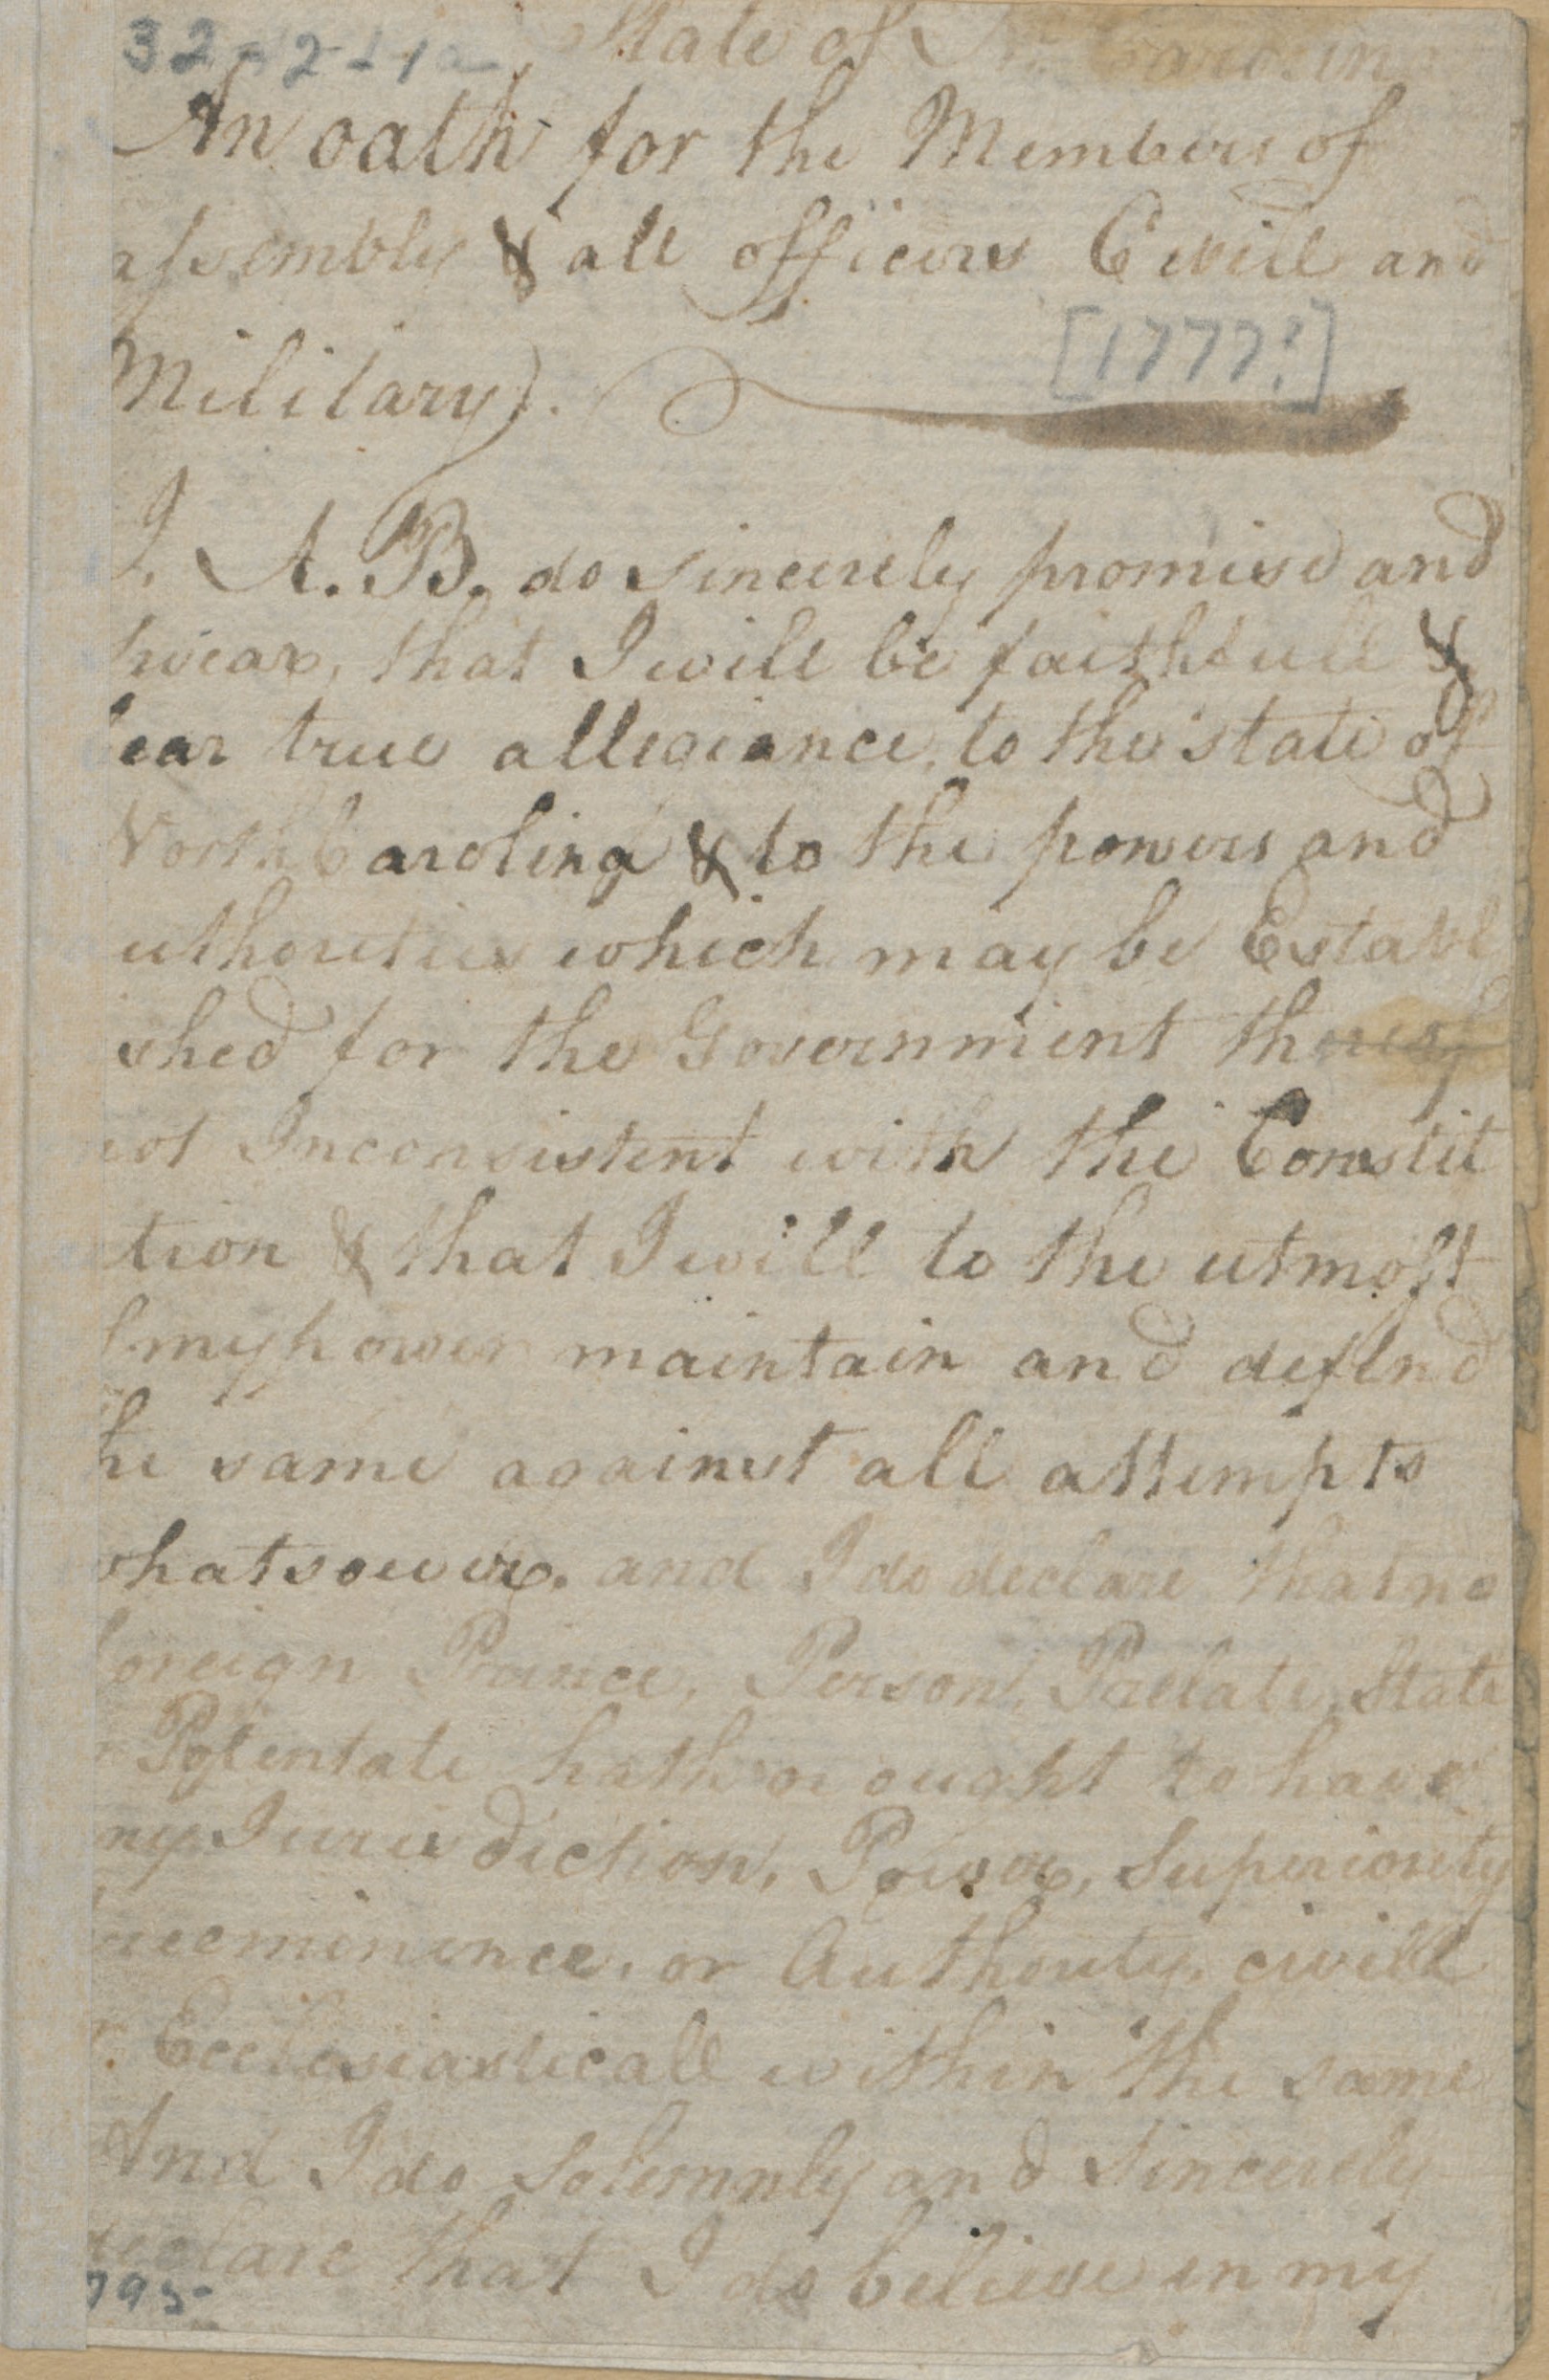 32-2-1-1a
State of Carolin
An oath for the Members of
assembly & all officers Civill and
Military).
[1777?]
I. A. B. do sincerely promise and
swear, that I will be faithfull &
ear true allegiance, to the state of
North Carolina & to the powers and
uthorities which may be Establ
shed for the Government thereof
not Inconsistent with the Constit
tion & that I will to the utmost
f my power maintain and defend
he same against all attempts
whatsoever. and I do declare that no
foreign Prince, Person, Prelate, State
r Potentate hath or ought to have
ny Jurisdiction, Power, Superiority
reeminence, or Authority, civill
r. Ecclesiasticall within the same
And I do solemnly and sincerely
declare that I do believe in my
795-